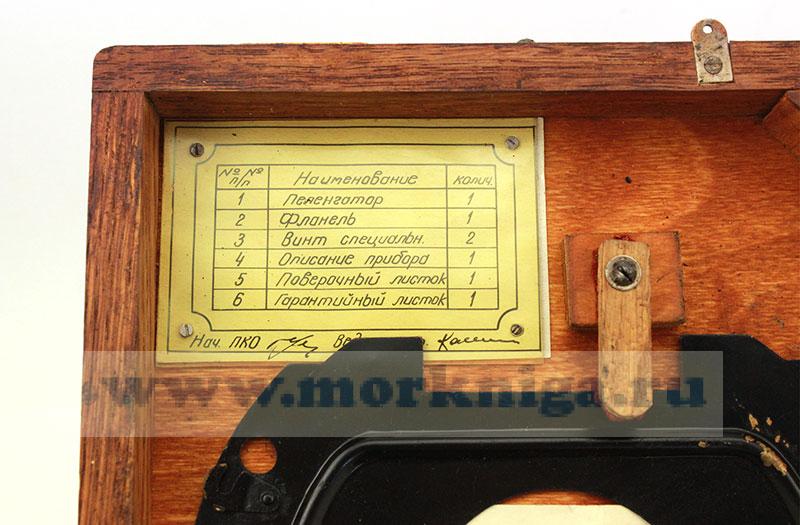 №№ п/п Наименование колич.
1 Пеленгатор 1
2 Фланель 1
3 Винт специальн. 2
4 Описание прибора 1
5 Поверочный листок 1
6 Гарантийный листок 1
Нач. ПКО
www.morkniga.ru